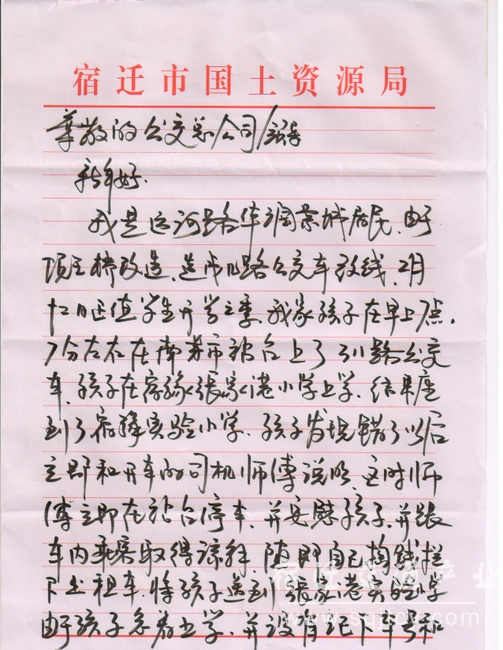 宿迁市国土资源局
尊敬的公交总公司领导
新年好.
我是运河路华润景城居民,由于
项王桥改造,造成几路公交车改线,2月
12日正值学生开学之季,我家孩子在早上7点
7分左右在南菜市站台上了31路公交
车,孩子在宿豫张家港小学上学,结果座
到了宿豫实验小学,孩子发现错了以后
立即和开车的司机师傅说明,这时师
傅立即在站台停车,并安慰孩子,并跟
车内乘客取得谅解,随即自己掏钱拦
下出租车,将孩子送到张家港实验小学
由于孩子急着上学,并没有记下车号和